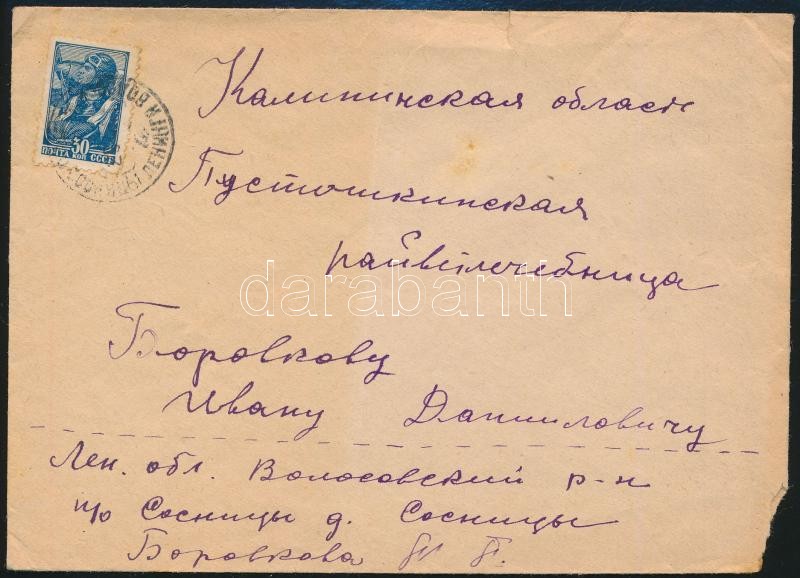 30
ПОЧТА КОП СССР
Калининская область
Пустошкинская
райветлечебница
darabanth
Боровкову
Ивану Данииловичу
Лен. обл. Волосовский р-н
п/о Сосницы д. Сосницы
Боровкова